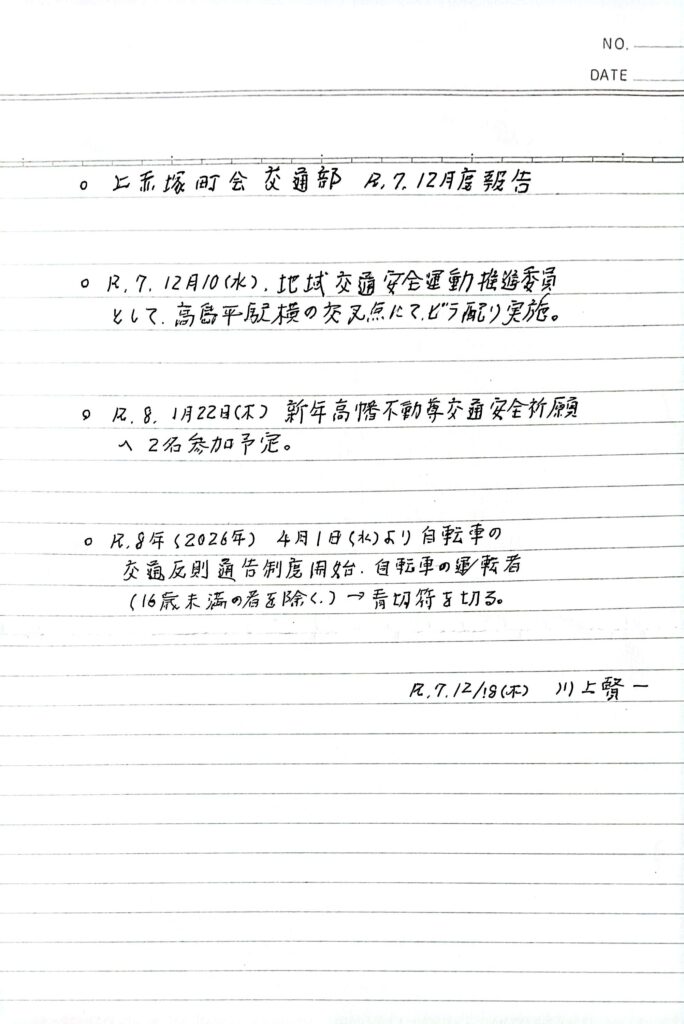 NO.
DATE
○ 上赤塚町会 交通部 R.7.12月度報告
○ R.7.12月10(水).地域交通安全運動推進委員
として、高島平駅横の交叉点にて、ビラ配り実施。
○ R.8.1月22日(木) 新年高幡不動尊交通安全祈願
へ2名参加予定。
○ R.8年(2026年) 4月1日(水)より自転車の
交通反則通告制度開始.自転車の運転者
(16歳未満の者を除く.)→青切符を切る。
R.7.12/18(木) 川上賢一